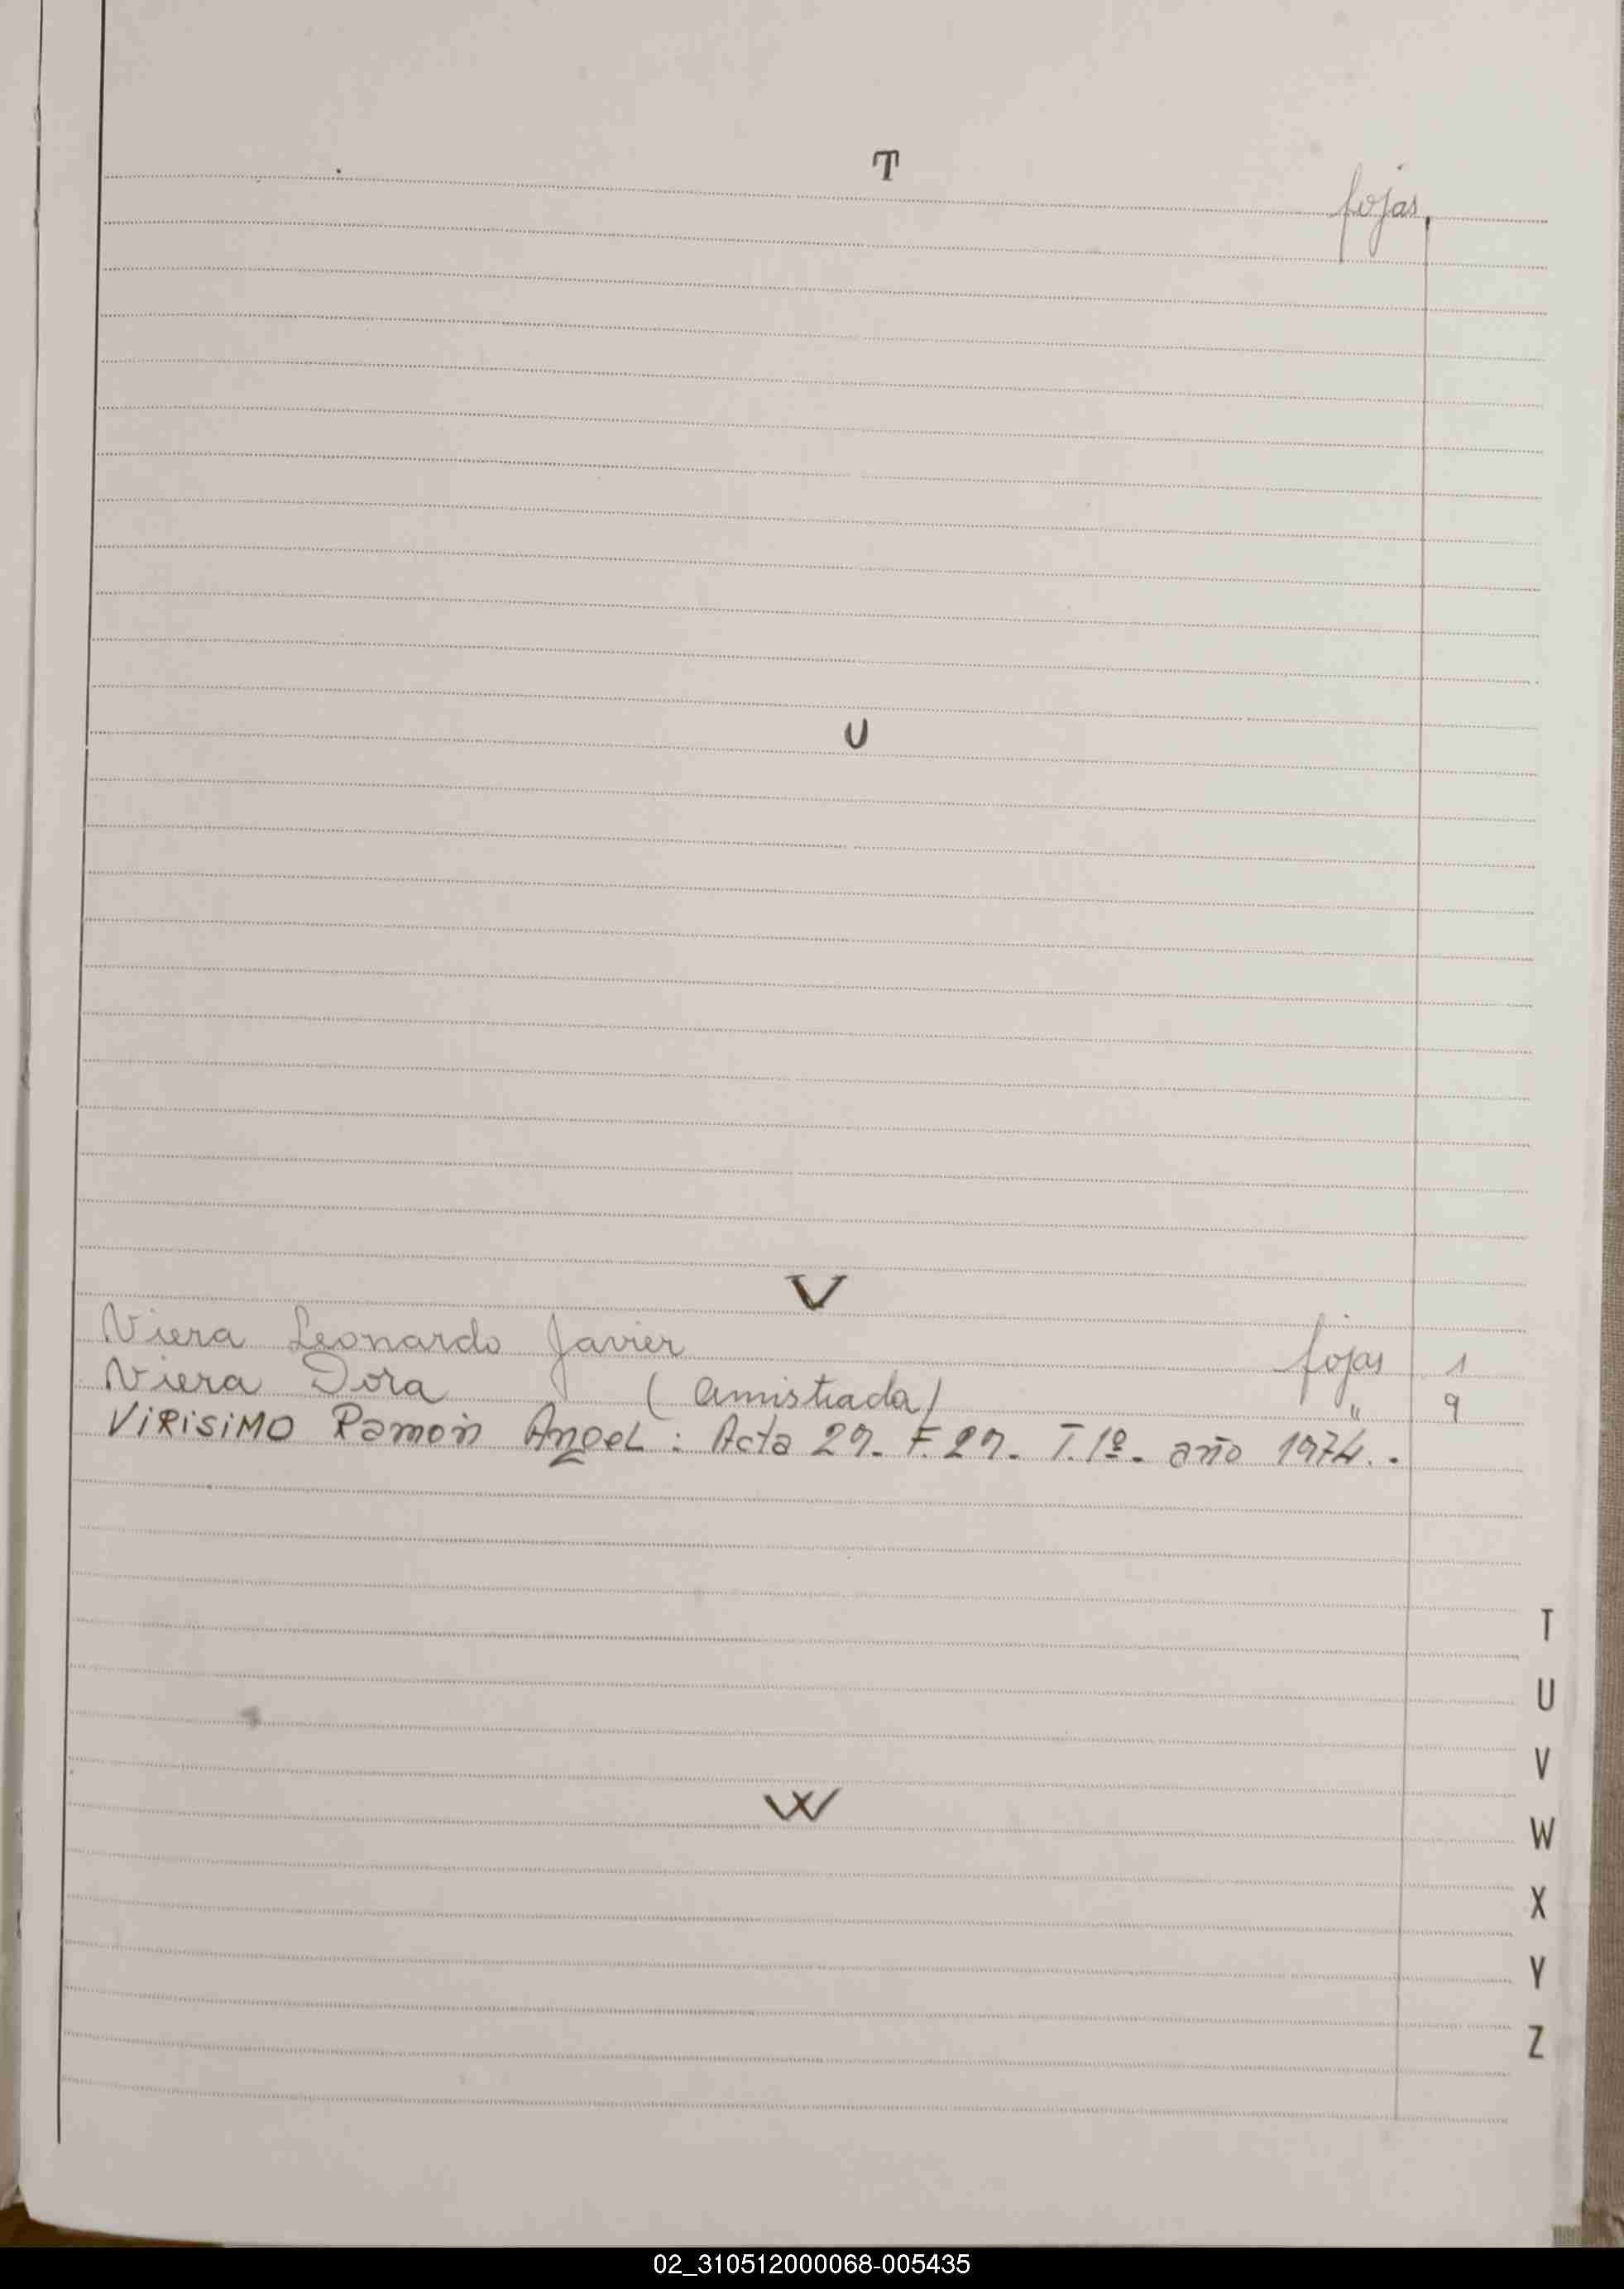 T
fojas
U
V
Viera Leonardo Javier fojas 1
Viera Dora (Amistiada) " 9
ViRiSiMO Ramón Angel : Acta 29. F. 29. T. 1º. año 1974..
W
T
U
V
W
X
Y
Z
02_310512000068-005435